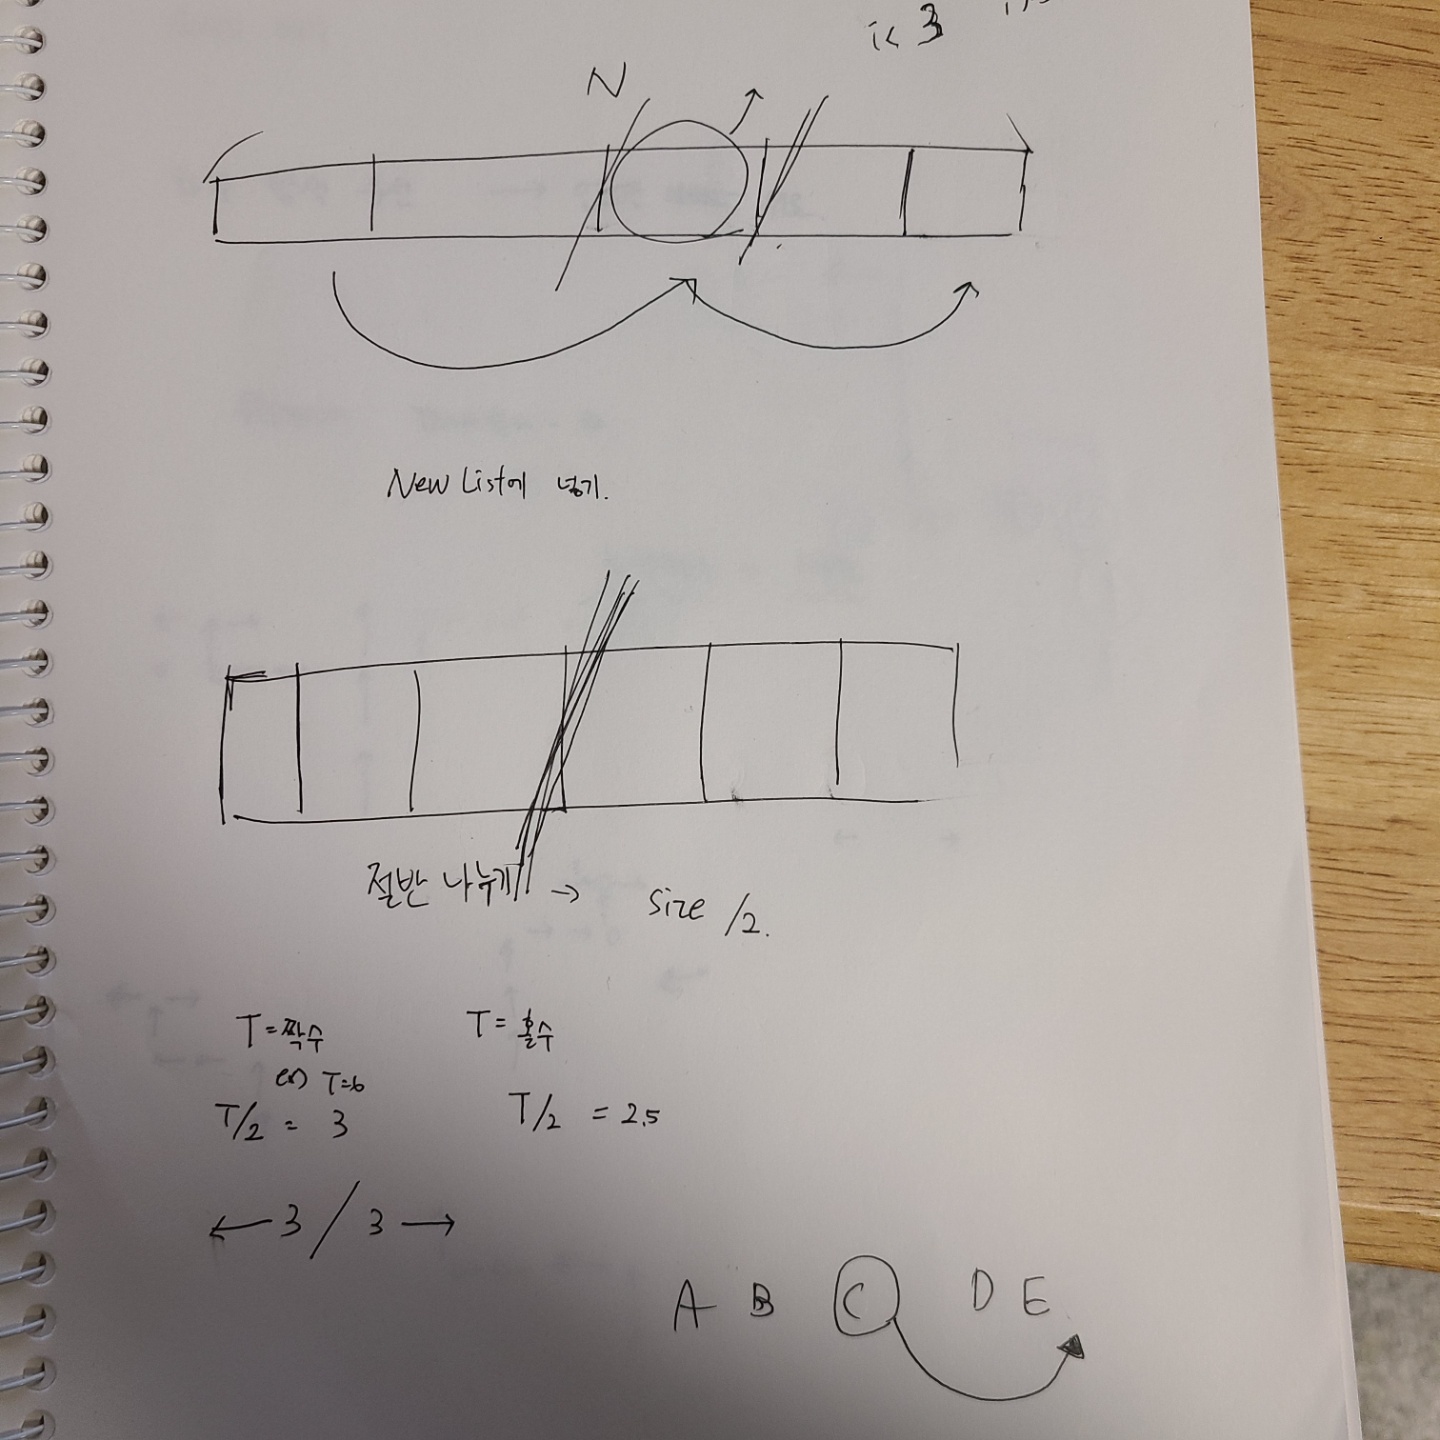 i<3
N
New List에 넣기.
절반 나누기 → size /2.
T=짝수 T= 홀수
ex) T=6
T/2 = 3 T/2 = 2.5
← 3 / 3 →
A B C D E